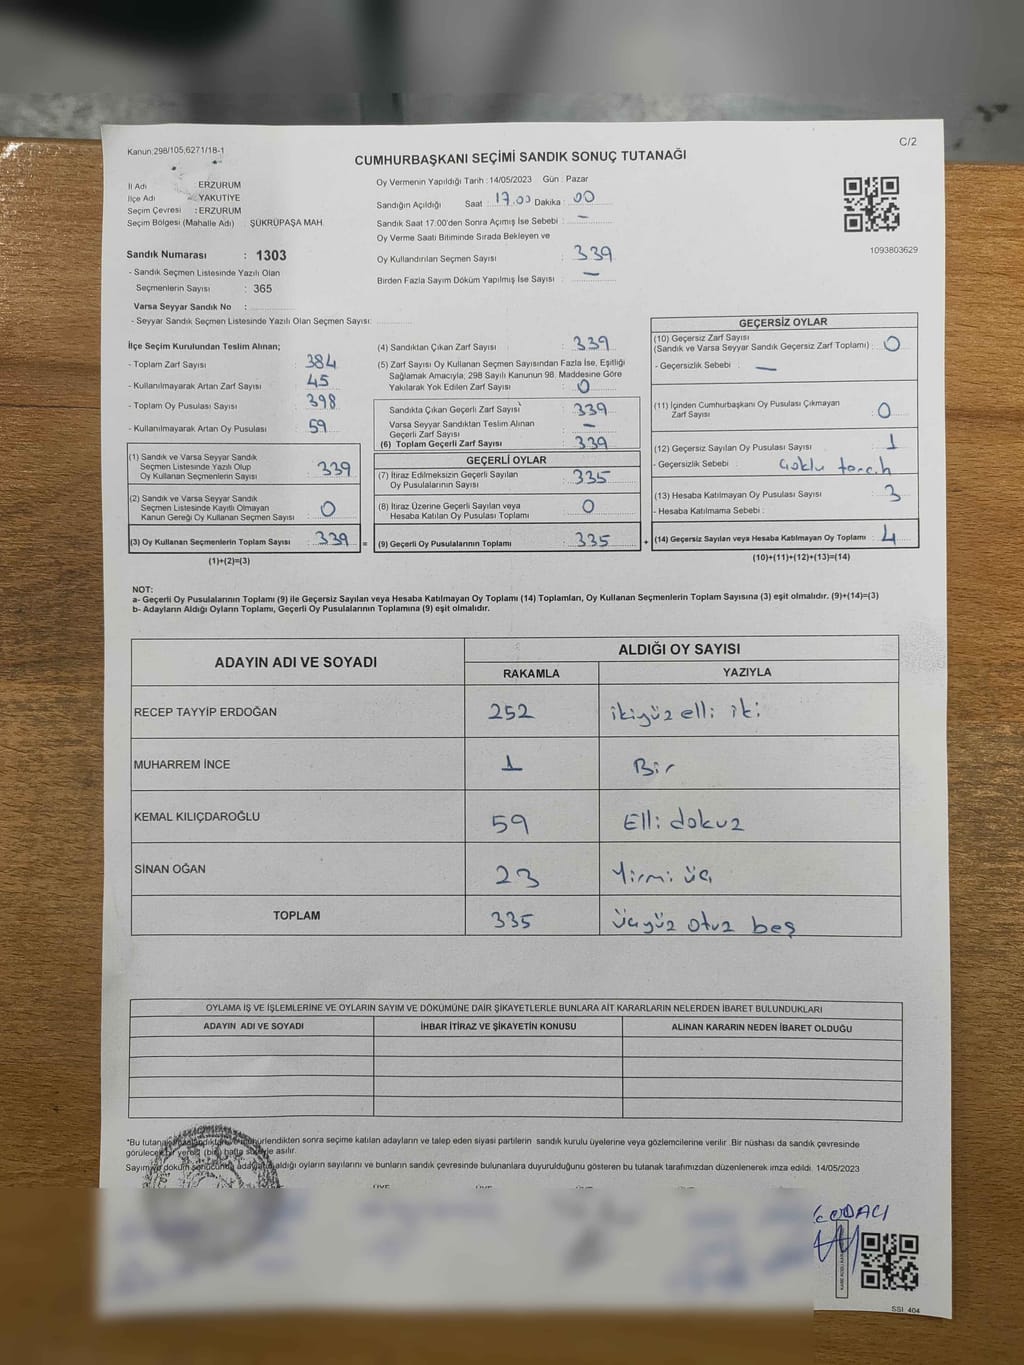 Kanun:298/105,6271/18-1
C/2
CUMHURBAŞKANI SEÇİMİ SANDIK SONUÇ TUTANAĞI
İl Adı : ERZURUM
İlçe Adı : YAKUTİYE
Seçim Çevresi : ERZURUM
Seçim Bölgesi (Mahalle Adı) : ŞÜKRÜPAŞA MAH.
Sandık Numarası : 1303
- Sandık Seçmen Listesinde Yazılı Olan
Seçmenlerin Sayısı : 365
Varsa Seyyar Sandık No :
- Seyyar Sandık Seçmen Listesinde Yazılı Olan Seçmen Sayısı:
Oy Vermenin Yapıldığı Tarih : 14/05/2023 Gün : Pazar
Sandığın Açıldığı Saat : 17.00 Dakika : 00
Sandık Saat 17.00'den Sonra Açımış İse Sebebi : –
Oy Verme Saati Bitiminde Sırada Bekleyen ve
Oy Kullandırılan Seçmen Sayısı : 339
Birden Fazla Sayım Döküm Yapılmış İse Sayısı : –
1093803629
İlçe Seçim Kurulundan Teslim Alınan;
- Toplam Zarf Sayısı : 384
- Kullanılmayarak Artan Zarf Sayısı : 45
- Toplam Oy Pusulası Sayısı : 398
- Kullanılmayarak Artan Oy Pusulası : 59
(1) Sandık ve Varsa Seyyar Sandık
Seçmen Listesinde Yazılı Olup
Oy Kullanan Seçmenlerin Sayısı : 339
(2) Sandık ve Varsa Seyyar Sandık
Seçmen Listesinde Kayıtlı Olmayan
Kanun Gereği Oy Kullanan Seçmen Sayısı : 0
(3) Oy Kullanan Seçmenlerin Toplam Sayısı : 339 =
(1)+(2)=(3)
(4) Sandıktan Çıkan Zarf Sayısı : 339
(5) Zarf Sayısı Oy Kullanan Seçmen Sayısından Fazla İse, Eşitliği
Sağlamak Amacıyla; 298 Sayılı Kanunun 98. Maddesine Göre
Yakılarak Yok Edilen Zarf Sayısı : 0
Sandıkta Çıkan Geçerli Zarf Sayısı : 339
Varsa Seyyar Sandıktan Teslim Alınan
Geçerli Zarf Sayısı : –
(6) Toplam Geçerli Zarf Sayısı : 339
GEÇERLİ OYLAR
(7) İtiraz Edilmeksizin Geçerli Sayılan
Oy Pusulalarının Sayısı : 335
(8) İtiraz Üzerine Geçerli Sayılan veya
Hesaba Katılan Oy Pusulası Toplamı : 0
(9) Geçerli Oy Pusulalarının Toplamı : 335 +
GEÇERSİZ OYLAR
(10) Geçersiz Zarf Sayısı
(Sandık ve Varsa Seyyar Sandık Geçersiz Zarf Toplamı) : 0
- Geçersizlik Sebebi : –
(11) İçinden Cumhurbaşkanı Oy Pusulası Çıkmayan
Zarf Sayısı : 0
(12) Geçersiz Sayılan Oy Pusulası Sayısı : 1
- Geçersizlik Sebebi : Çoklu tercih
(13) Hesaba Katılmayan Oy Pusulası Sayısı : 3
- Hesaba Katılmama Sebebi :
(14) Geçersiz Sayılan veya Hesaba Katılmayan Oy Toplamı : 4
(10)+(11)+(12)+(13)=(14)
NOT:
a- Geçerli Oy Pusulalarının Toplamı (9) ile Geçersiz Sayılan veya Hesaba Katılmayan Oy Toplamı (14) Toplamları, Oy Kullanan Seçmenlerin Toplam Sayısına (3) eşit olmalıdır. (9)+(14)=(3)
b- Adayların Aldığı Oyların Toplamı, Geçerli Oy Pusulalarının Toplamına (9) eşit olmalıdır.
ADAYIN ADI VE SOYADI ALDIĞI OY SAYISI
RAKAMLA YAZIYLA
RECEP TAYYİP ERDOĞAN 252 ikiyüz elli iki
MUHARREM İNCE 1 Bir
KEMAL KILIÇDAROĞLU 59 Elli dokuz
SİNAN OĞAN 23 Yirmi üç
TOPLAM 335 üçyüz otuz beş
OYLAMA İŞ VE İŞLEMLERİNE VE OYLARIN SAYIM VE DÖKÜMÜNE DAİR ŞİKAYETLERLE BUNLARA AİT KARARLARIN NELERDEN İBARET BULUNDUKLARI
ADAYIN ADI VE SOYADI İHBAR İTİRAZ VE ŞİKAYETİN KONUSU ALINAN KARARIN NEDEN İBARET OLDUĞU
"Bu tutanak sonra seçime katılan adayların ve talep eden siyasi partilerin sandık kurulu üyelerine veya gözlemcilerine verilir .Bir nüshası da sandık çevresinde
görülecek bir yere (bir) hafta süreyle asılır.
Sayım ve döküm sonucunda adayların aldığı oyların sayılarını ve bunların sandık çevresinde bulunanlara duyurulduğunu gösteren bu tutanak tarafımızdan düzenlenerek imza edildi. 14/05/2023
SSI 404